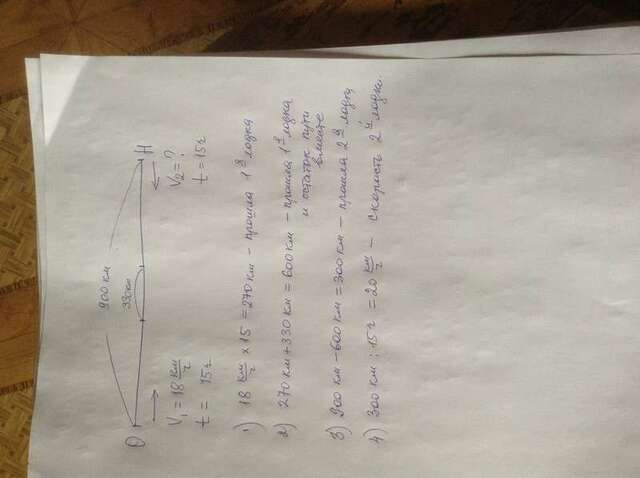 900 км
330км
О
Н
V₁ = 18 км/ч
V₂ = ?
t = 15ч
t = 15ч
1) 18 км/ч × 15 = 270 км – прошла 1я лодка
2) 270 км + 330 км = 600 км – прошла 1я лодка
и остаток пути
вместе
3) 900 км – 600 км = 300 км – прошла 2я лодка
4) 300 км : 15 ч = 20 км/ч – скорость 2й лодки.